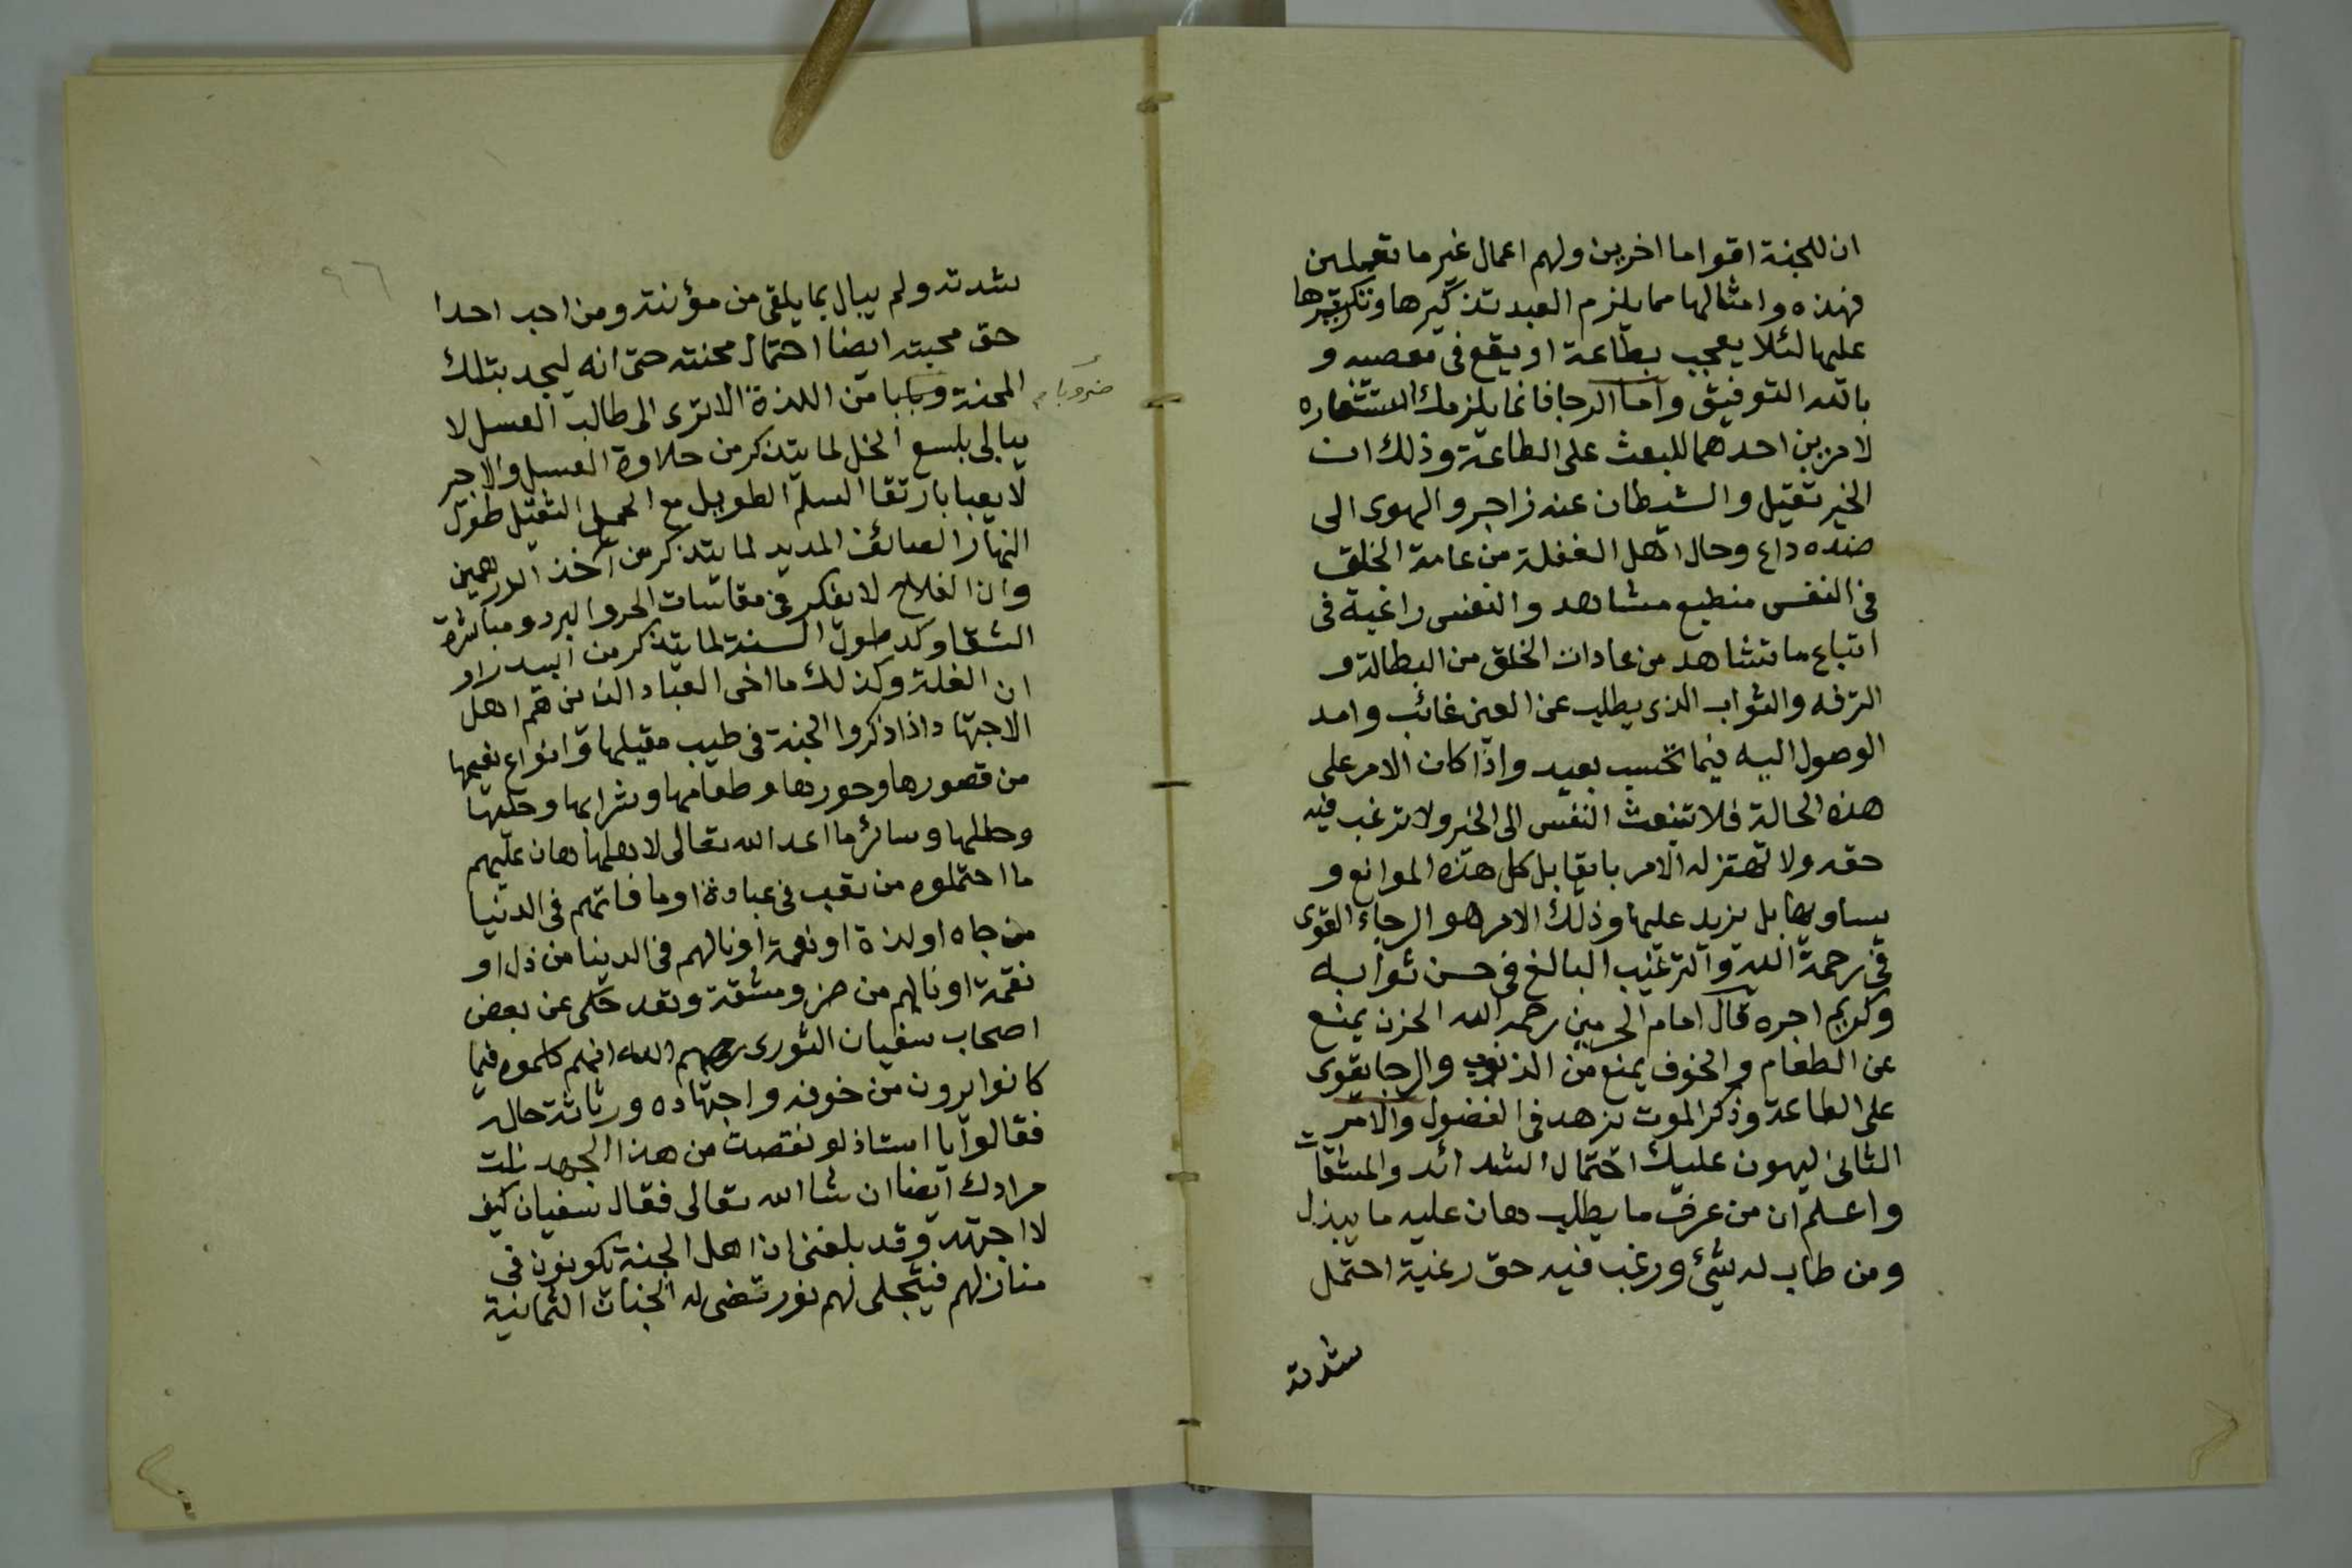 ان للجنة اقواما اخرين ولهم اعمال غير ما تعملين
فهذه وامثالها مما يلزم العبد تذكيرها وتكريرها
عليها لئلا يعجب بطاعة او يقع في معصيه و
بالله التوفيق واما الرجا فانما يلزمك استشعاره
لامرين احدهما للبعث على الطاعة وذلك ان
الخير ثقيل والشيطان عنه زاجر والهوى الى
ضده داع وحال اهل الغفلة من عامة الخلق
في النفس منطبع مشاهد والنفس راغبة في
اتباع ما تشاهد من عادات الخلق من البطالة و
الترفه والثواب الذي يطلب عن العين غائب وامد
الوصول اليه فيما تحسب بعيد واذا كان الامر على
هذه الحالة فلا تنبعث النفس الى الخير ولا ترغب فيه
حقه ولا تهتز له الامر بامقابل كل هذه الموانع و
يساويها بل يزيد عليها وذلك الامر هو الرجاء القوى
في رحمة الله والترغيب البالغ في حسن ثوابه
وكريم اجره قال امام الحرمين رحمه الله الحزن يمنع
عن الطعام والخوف يمنع من الذنوب والرجا يقوى
على الطاعة وذكر الموت يزهد في الفضول والامر
الثانى ليهون عليك احتمال الشدائد والمشقات
واعلم ان من عرف ما يطلب هان عليه ما يبذل
ومن طاب له شيئ ورغب فيه حق رغبة احتمل
شدته
٩٦
شدته ولم يبال بما يلقى من مؤنته ومن احب احدا
حق محبته ايضا احتمال محنته حتى انه ليجد بتلك
المحنة وبابا من اللذة الاترى الى طالب العسل لا
ضروبا
يبالى بلسع النحل لما يتذكر من حلاوة العسل والاجير
لا يعبا بارتقا السلم الطويل مع الحمل الثقيل طول
النهار الصائف المديد لما يتذكر من اخذ الدرهمين
وان الفلاح لا يفكر في مقاسات الحر والبرد ومباشرة
الشقا وكد طول السنة لما يتذكر من البيدر او
ان الغلة وكذلك ما اخى العباد الذين هم اهل
الاجتهاد اذا ذكروا الجنة في طيب مقيلها وانواع نعيمها
من قصورها وحورها وطعامها وشرابها وحليها
وحللها وسائر ما اعد الله تعالى لاهلها هان عليهم
ما احتملوه من تعب في عبادة او ما فاتهم في الدنيا
من جاه او لذة او نعمة او نالهم في الدينا من ذل او
نقمة او نالهم من ضر ومشقة وقد حكى عن بعض
اصحاب سفيان الثورى رحمهم الله انهم كلموه فيما
كانوا يرون من خوفه واجتهاده ورثاثة حاله
فقالوا يا استاذ لو نقصت من هذا الجهد نلت
مرادك ايضا ان شا الله تعالى فقال سفيان كيف
لا اجتهد وقد بلغنى ان اهل الجنة يكونون في
منازلهم فيتجلى لهم نور تضى له الجنات الثمانية